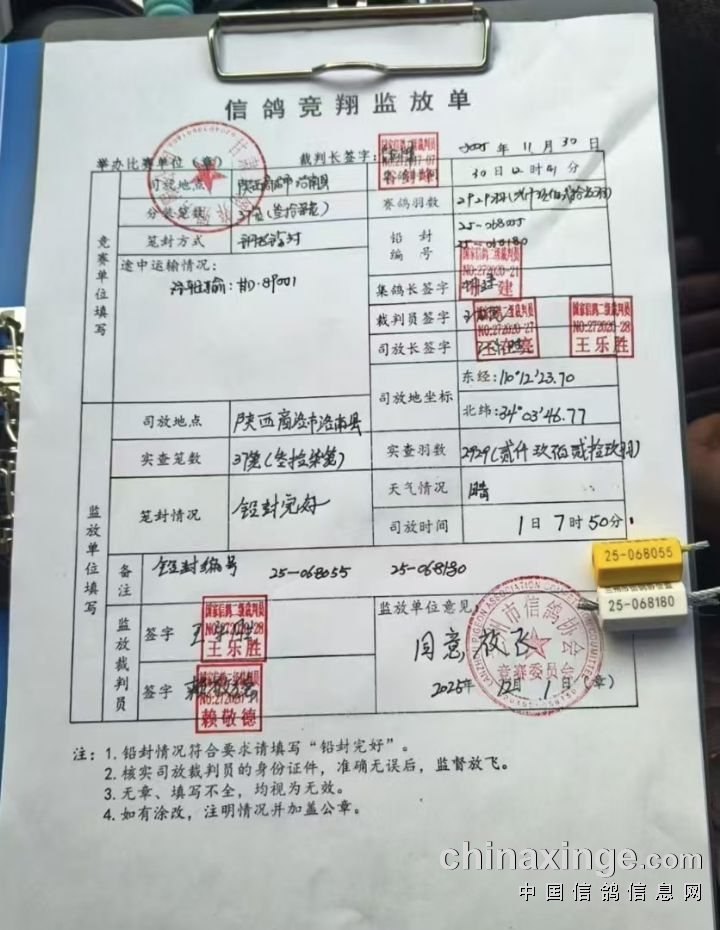 信鸽竞翔监放单
举办比赛单位（章） 裁判长签字： 2025年11月30日
竞赛单位填写
司放地点 陕西商洛市洛南县 30日12时41分
分装笼数 37笼(叁拾柒笼) 赛鸽羽数 2929羽
笼封方式 钢丝铅封 铅封编号 25-068055
25-068180
途中运输情况：
冷链运输：甘D·89001
集鸽长签字
国家信鸽二级裁判员
NO:272020-21
建
裁判员签字
司放长签字
国家信鸽二级裁判员
NO:272020-27
国家信鸽二级裁判员
NO:272020-28
王乐胜
司放地坐标 东经：110°12′23.70
北纬：34°03′46.77
监放单位填写
司放地点 陕西商洛市洛南县
实查笼数 37笼(叁拾柒笼) 实查羽数 2929(贰仟玖佰贰拾玖羽)
笼封情况 铅封完好 天气情况 晴
司放时间 1日7时50分
备注 铅封编号 25-068055 25-068180
25-068055
25-068180
监放裁判员
签字 王乐胜
国家信鸽二级裁判员
NO:272020-28
王乐胜
签字 赖敬德
国家信鸽二级裁判员
赖敬德
监放单位意见：
同意放飞
市信鸽协会
竞赛委员会
2025年12月1日（章）
注：1. 铅封情况符合要求请填写“铅封完好”。
2. 核实司放裁判员的身份证件，准确无误后，监督放飞。
3. 无章、填写不全，均视为无效。
4. 如有涂改，注明情况并加盖公章。
chinaxinge.com
中国信鸽信息网